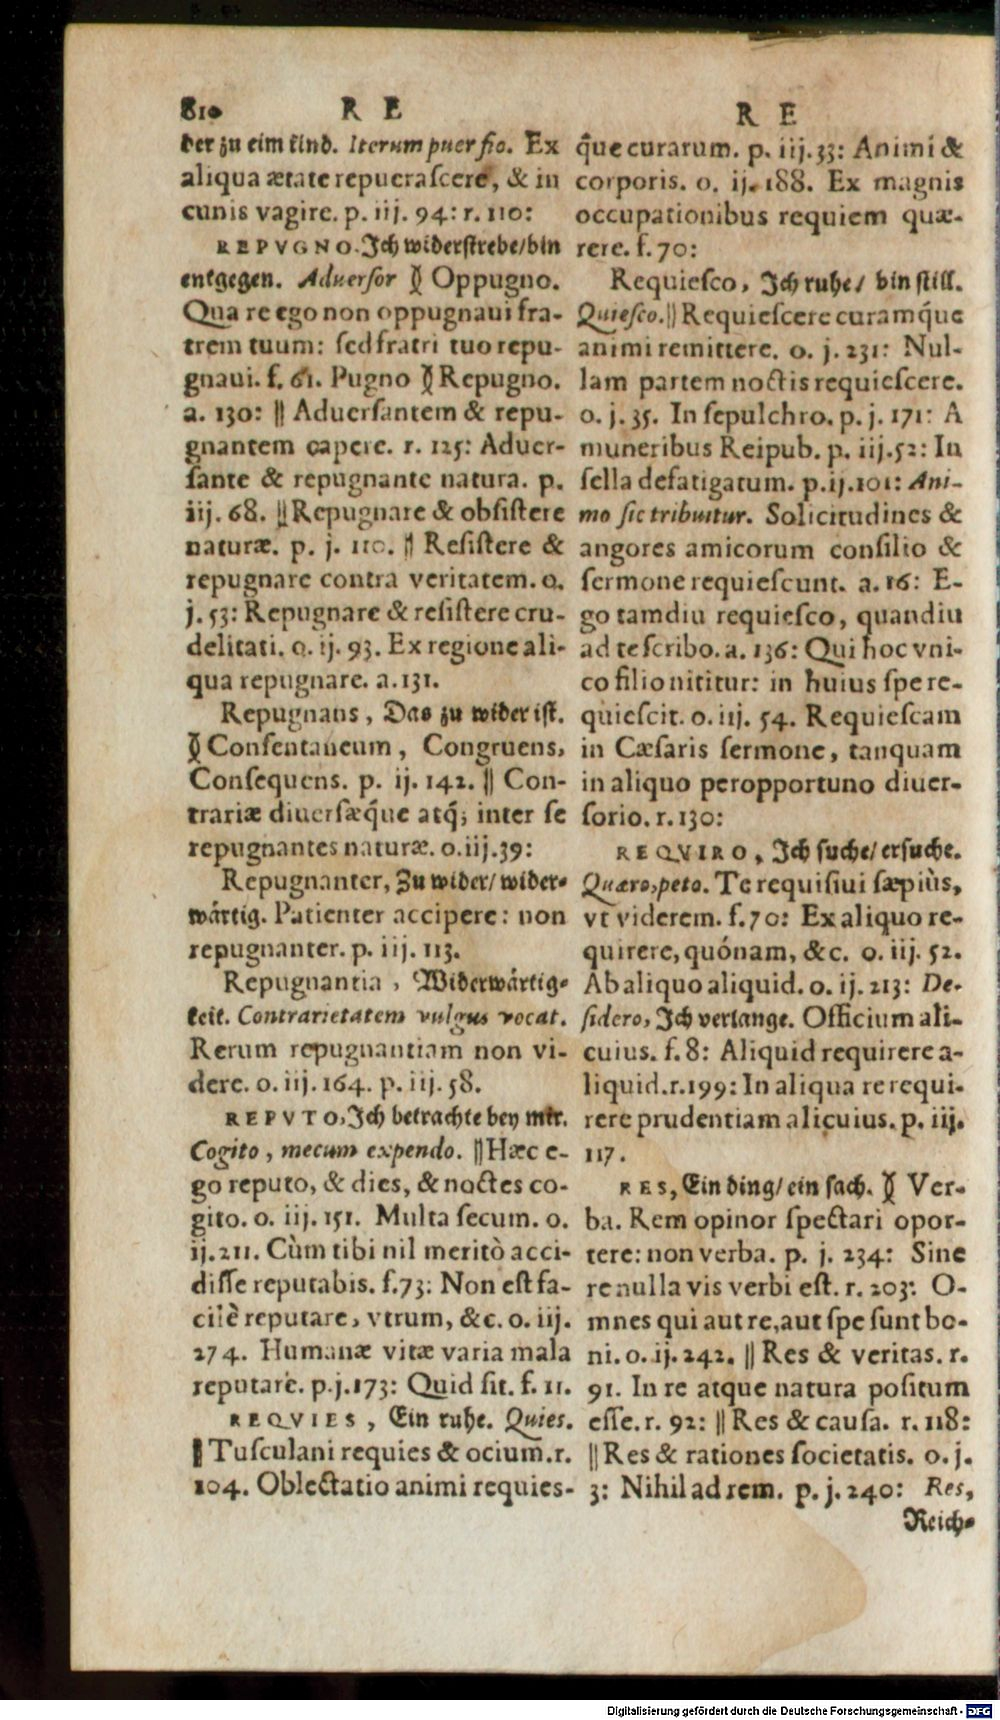 810 R E
der zu eim kind. Iterum puer fio. Ex
aliqua ætate repuerascere, & in
cunis vagire. p. iij. 94: r. 110:
REPVGNO. Ich widerstrebe/bin
entgegen. Aduersor Oppugno.
Qua re ego non oppugnaui fra-
trem tuum: sed fratri tuo repu-
gnaui. f. 61. Pugno Repugno.
a. 130: || Aduersantem & repu-
gnantem capere. r. 125: Aduer-
sante & repugnante natura. p.
iij. 68. || Repugnare & obsistere
naturæ. p. j. 110. || Resistere &
repugnare contra veritatem. o.
j. 53: Repugnare & resistere cru-
delitati. o. ij. 93. Ex regione ali-
qua repugnare. a. 131.
Repugnans, Das zu wider ist.
Consentaneum, Congruens,
Consequens. p. ij. 142. || Con-
trariæ diuersæq́ue atq́; inter se
repugnantes naturæ. o. iij. 39:
Repugnanter, Zu wider/wider-
wärtig. Patienter accipere: non
repugnanter. p. iij. 113.
Repugnantia, Widerwärtig-
keit. Contrarietatem vulgus vocat.
Rerum repugnantiam non vi-
dere. o. iij. 164. p. iij. 58.
REPVTO, Ich betrachte bey mir.
Cogito, mecum expendo. || Hæc e-
go reputo, & dies, & noctes co-
gito. o. iij. 151. Multa secum. o.
ij. 211. Cùm tibi nil meritò acci-
disse reputabis. f. 73: Non est fa-
cilè reputare, vtrum, &c. o. iij.
274. Humanæ vitæ varia mala
reputare. p. j. 173: Quid sit. f. 11.
REQVIES, Ein ruhe. Quies.
|| Tusculani requies & ocium. r.
104. Oblectatio animi requies-
R E
q́ue curarum. p. iij. 33: Animi &
corporis. o. ij. 188. Ex magnis
occupationibus requiem quæ-
rere. f. 70:
Requiesco, Ich ruhe/ bin still.
Quiesco. || Requiescere curamq́ue
animi remittere. o. j. 231: Nul-
lam partem noctis requiescere.
o. j. 35. In sepulchro. p. j. 171: A
muneribus Reipub. p. iij. 52: In
sella defatigatum. p. ij. 101: Ani-
mo sic tribuitur. Solicitudines &
angores amicorum consilio &
sermone requiescunt. a. 16: E-
go tamdiu requiesco, quandiu
ad te scribo. a. 136: Qui hoc vni-
co filio nititur: in huius spe re-
quiescit. o. iij. 54. Requiescam
in Cæsaris sermone, tanquam
in aliquo peropportuno diuer-
sorio. r. 130:
REQVIRO, Ich suche/ersuche.
Quæro, peto. Te requisiui sæpiùs,
vt viderem. f. 70: Ex aliquo re-
quirere, quónam, &c. o. iij. 52.
Ab aliquo aliquid. o. ij. 213: De-
sidero, Ich verlange. Officium ali-
cuius. f. 8: Aliquid requirere a-
liquid. r. 199: In aliqua re requi-
rere prudentiam alicuius. p. iij.
117.
RES, Ein ding/ein sach. Ver-
ba. Rem opinor spectari opor-
tere: non verba. p. j. 234: Sine
re nulla vis verbi est. r. 203: O-
mnes qui aut re, aut spe sunt bo-
ni. o. ij. 242. || Res & veritas. r.
91. In re atque natura positum
esse. r. 92: || Res & causa. r. 118:
|| Res & rationes societatis. o. j.
3: Nihil ad rem. p. j. 240: Res,
Reich-
Digitalisierung gefördert durch die Deutsche Forschungsgemeinschaft - DFG